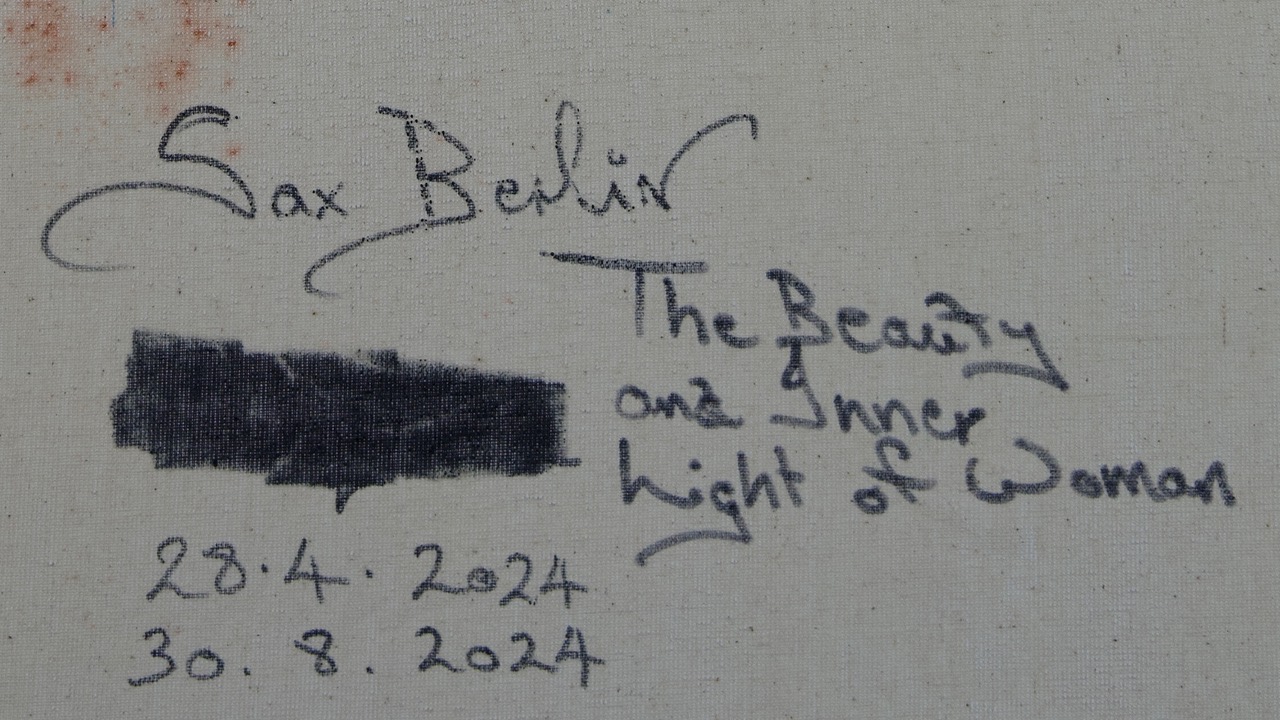 Sax Berlin
The Beauty
and Inner
Light of Woman
28.4.2024
30.8.2024